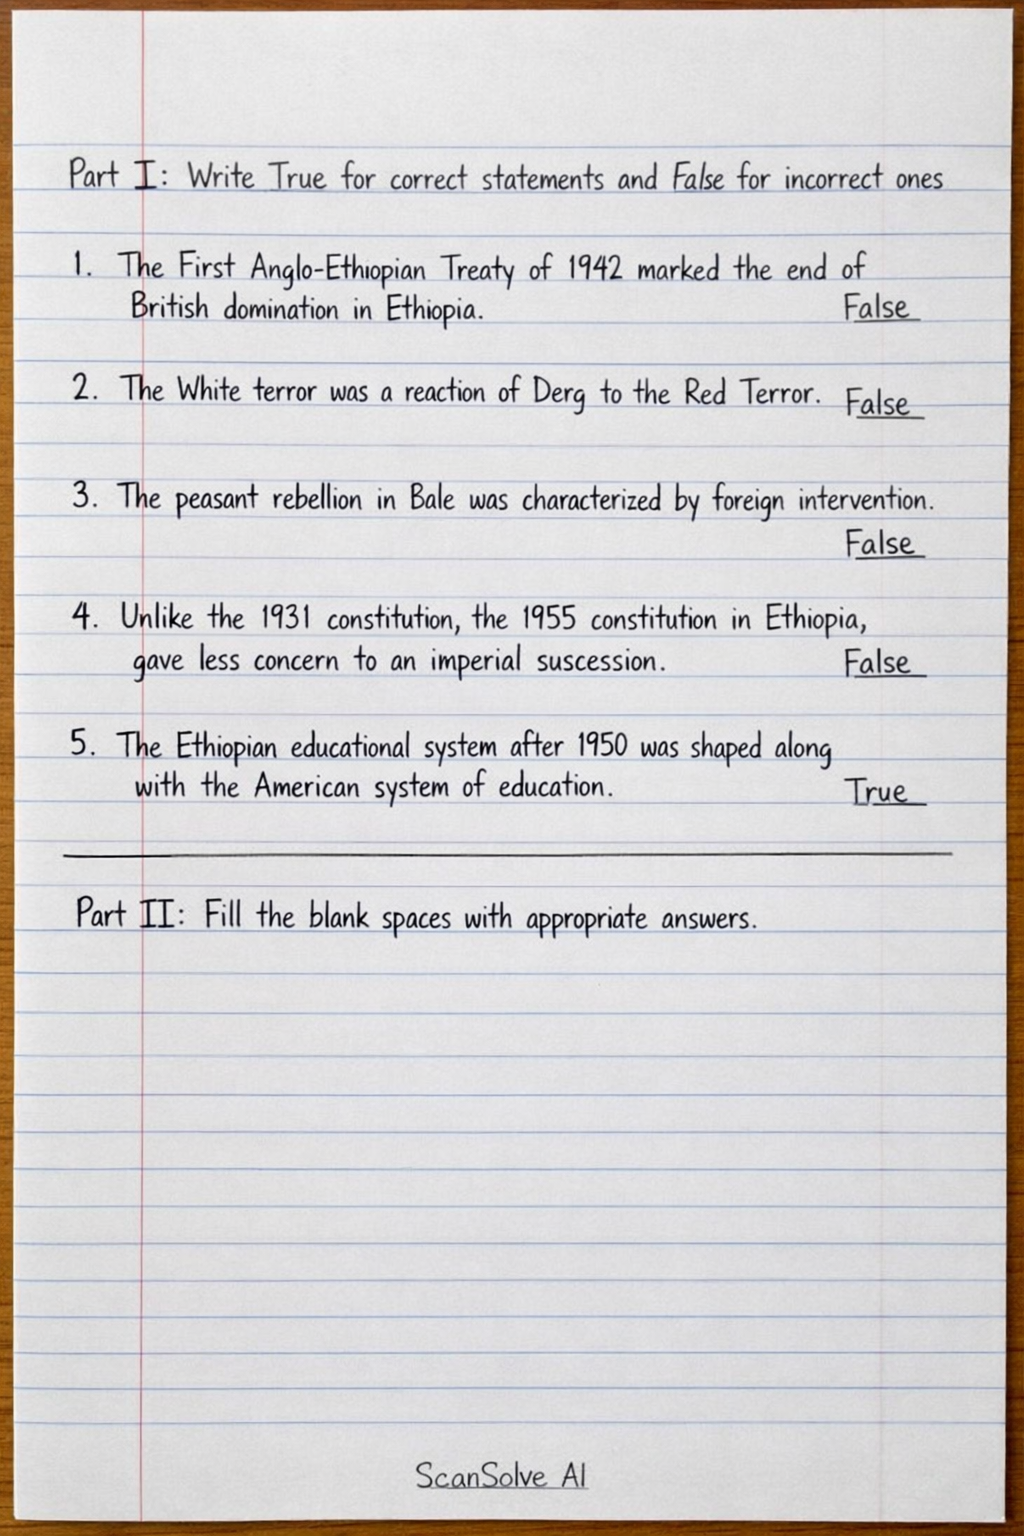 Part I: Write True for correct statements and False for incorrect ones
1. The First Anglo-Ethiopian Treaty of 1942 marked the end of
British domination in Ethiopia. False
2. The White terror was a reaction of Derg to the Red Terror. False
3. The peasant rebellion in Bale was characterized by foreign intervention.
False
4. Unlike the 1931 constitution, the 1955 constitution in Ethiopia,
gave less concern to an imperial suscession. False
5. The Ethiopian educational system after 1950 was shaped along
with the American system of education. True
Part II: Fill the blank spaces with appropriate answers.
ScanSolve AI